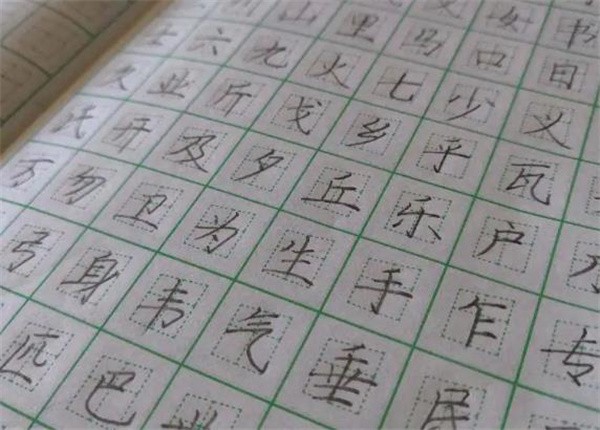 女 书
山 里 马 中 日
六 九 火 七 少 义
久 业 斤 戈 乡 乎 瓦
氏 开 及 夕 丘 乐 户
万 勿 卫 为 生 手 乍 专
弓 身 韦 气 垂 民
匹 巴